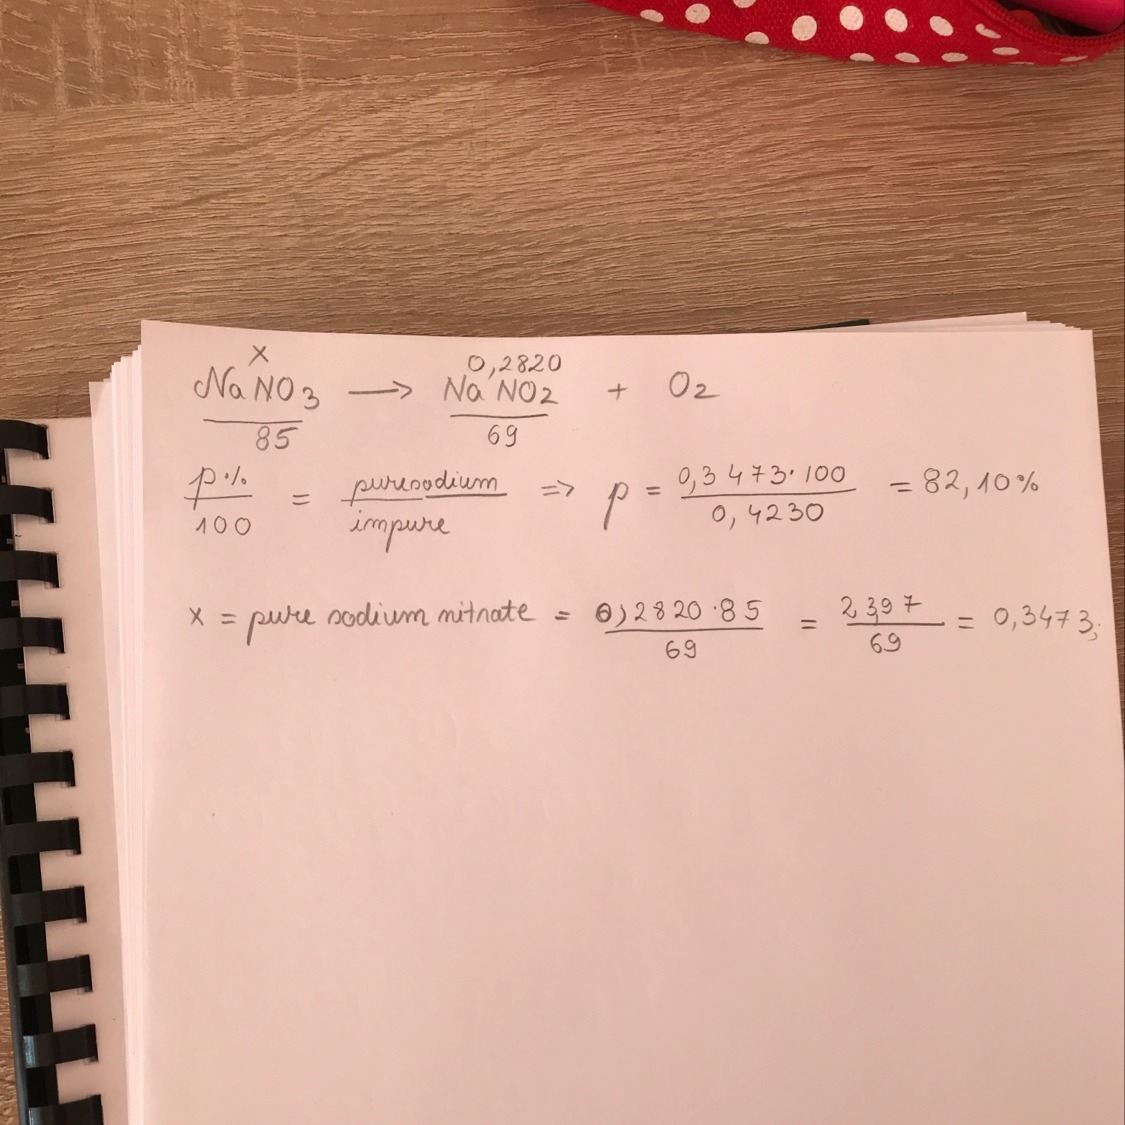 x 0,2820
NaNO3 → NaNO2 + O2
85 69
p% / 100 = pure sodium / impure ⇒ p = 0,3473·100 / 0,4230 = 82,10%
x = pure sodium nitrate = 0,2820·85 / 69 = 23,97 / 69 = 0,3473;